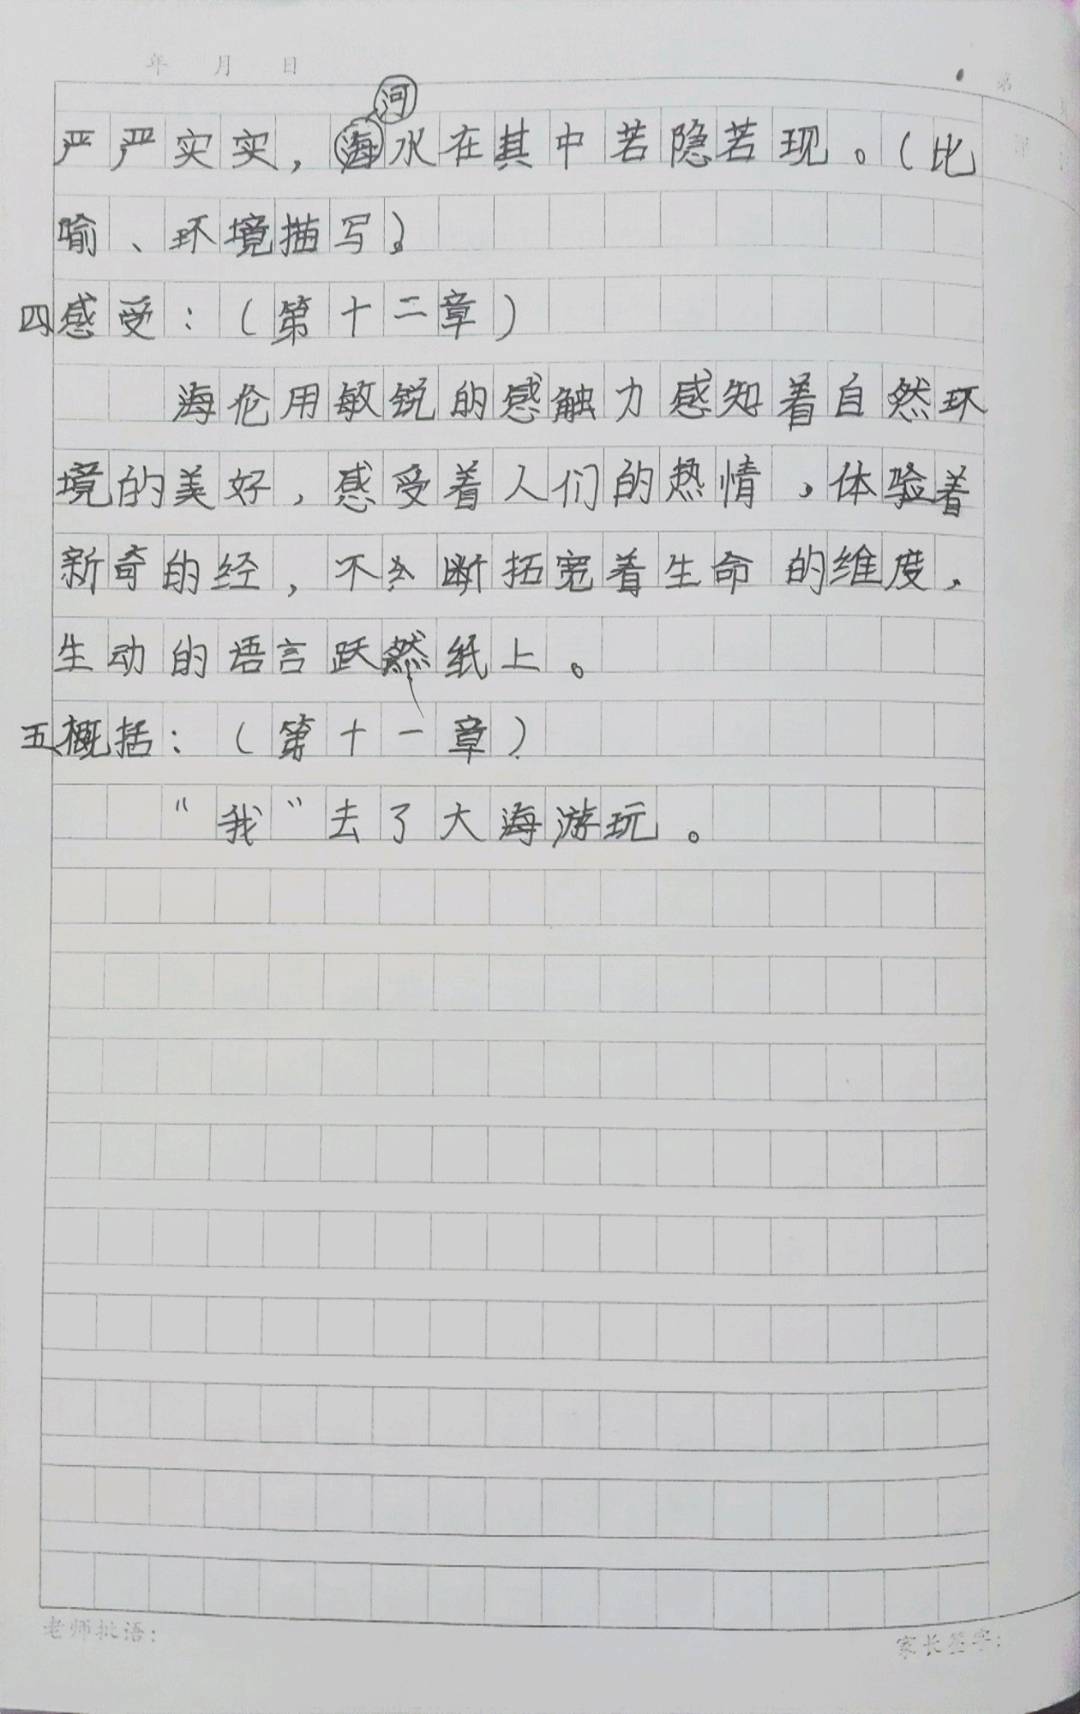 年 月 日
河
严严实实，海水在其中若隐若现。（比
喻、环境描写）
四感受：（第十二章）
海伦用敏锐的感触力感知着自然环
境的美好，感受着人们的热情，体验着
新奇的经，不断拓宽着生命的维度，
生动的语言跃然纸上。
五概括：（第十一章）
“我”去了大海游玩。
老师批语：
家长签字：